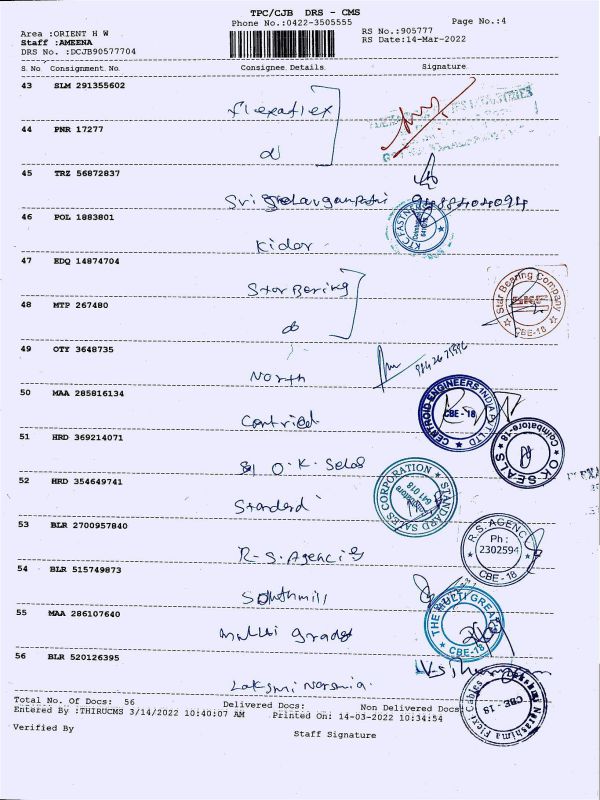 TPC/CJB DRS - CMS
Phone No.:0422-3505555
Page No.:4
Area :ORIENT H W
RS No.:905777
Staff :AMEENA
RS Date:14-Mar-2022
DRS No. :DCJB90577704
S. No Consignment. No. Consignee. Details. Signature.
43 SLM 291355602
flexaflex
44 PNR 17277
45 TRZ 56872837
46 POL 1883801
KTC FASTN
Kider
47 EDQ 14874704
Star Bering
Star Bearing Company
CBE-18
48 MTP 267480
49 OTY 3648735
North
50 MAA 285816134
CENTROID ENGINEERS INDIA PVT LTD
CBE - 18
51 HRD 369214071
O.K. Selas
O K SEALS
Coimbatore-18
52 HRD 354649741
Standard
STANDARD SALES CORPORATION
641 018
53 BLR 2700957840
R.S. Agencies
R.S. AGENCY
Ph :
2302594
CBE - 18
54 BLR 515749873
Southmill
55 MAA 286107640
THE MULTI GREAD
CBE-18
56 BLR 520126395
Laksmi Narsmia
Narashima Flexi Cables
CBE - 18
Total No. Of Docs: 56 Delivered Docs: Non Delivered Docs:
Entered By :THIRUCMS 3/14/2022 10:40:07 AM Printed On: 14-03-2022 10:34:54
Verified By Staff Signature